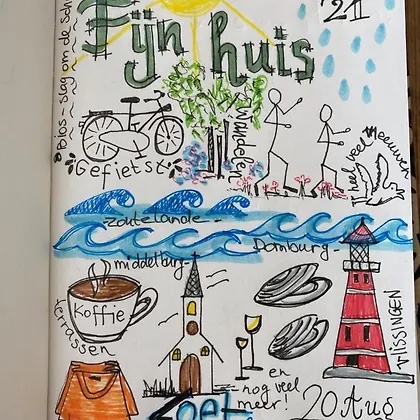 Fijn huis
21
Bios - slag om de Sch
Gefietst
Wandelen
Heel veel Meeuwen
Zoutelande
Domburg
middelburg
Koffie
terrassen
VLISSINGEN
en
nog veel
meer!
Zoet
20 Aug